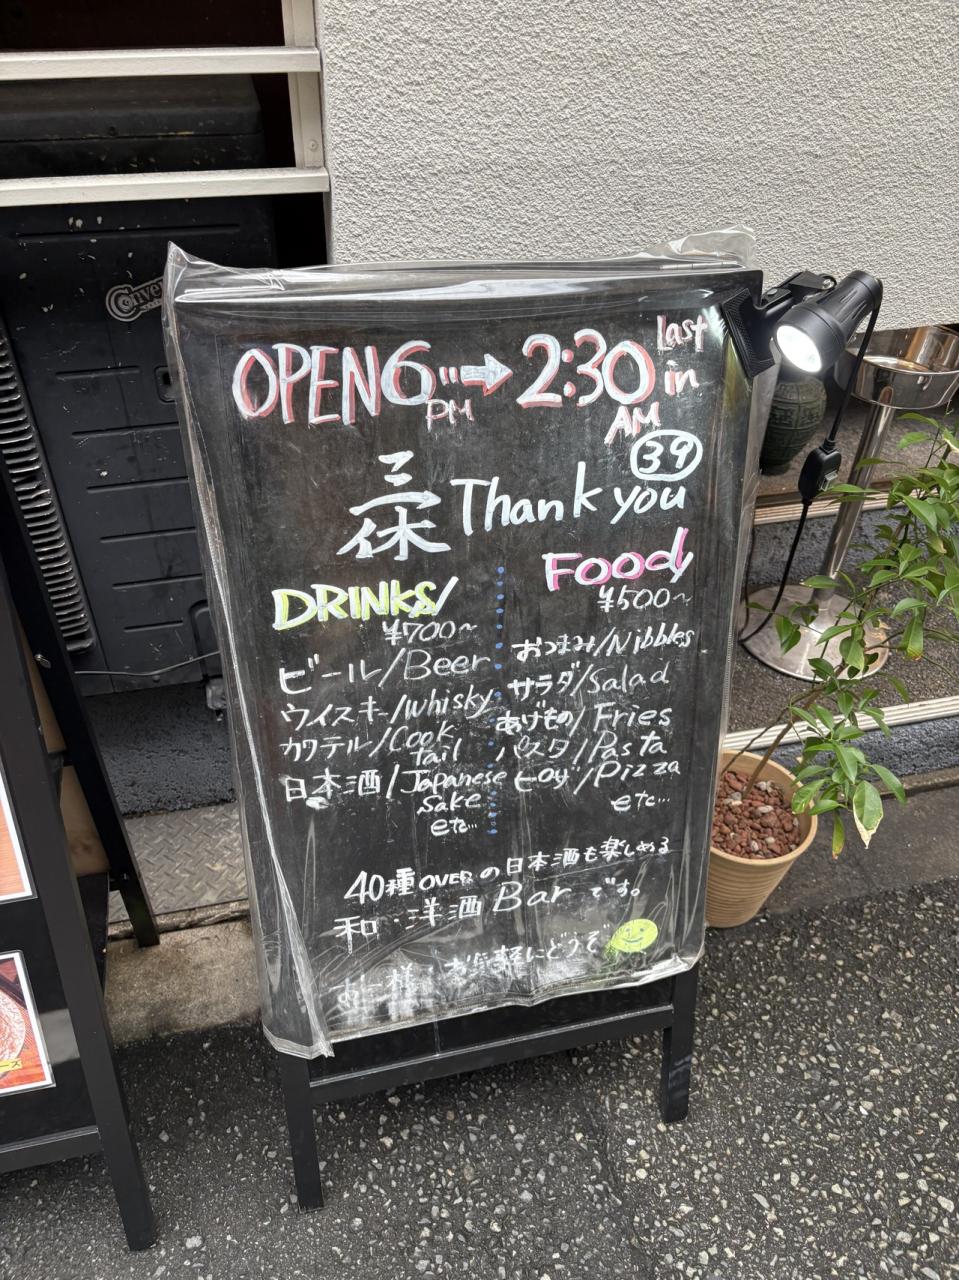 OPEN 6 PM → 2:30 AM last in
39
Thank you
DRINKS
¥700~
ビール/Beer
ウイスキー/Whisky
カクテル/Cook tail
日本酒/Japanese sake
etc...
Food
¥500~
おつまみ/Nibbles
サラダ/Salad
あげもの/Fries
パスタ/Pasta
ピザ/Pizza
etc...
40種OVERの日本酒も楽しめる
和・洋酒Barです。
お一人様 お気軽にどうぞ